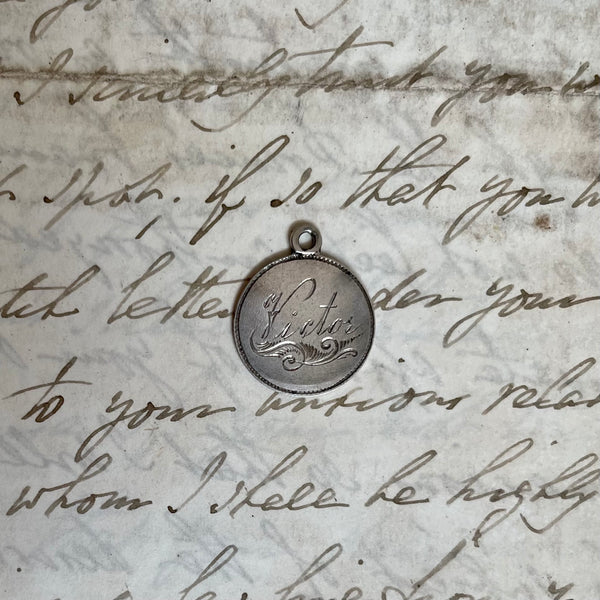 I sincerely trust you w
spot, if so that you w
tch letter der your
Victor
to your anxious relat
whom I shall be highly